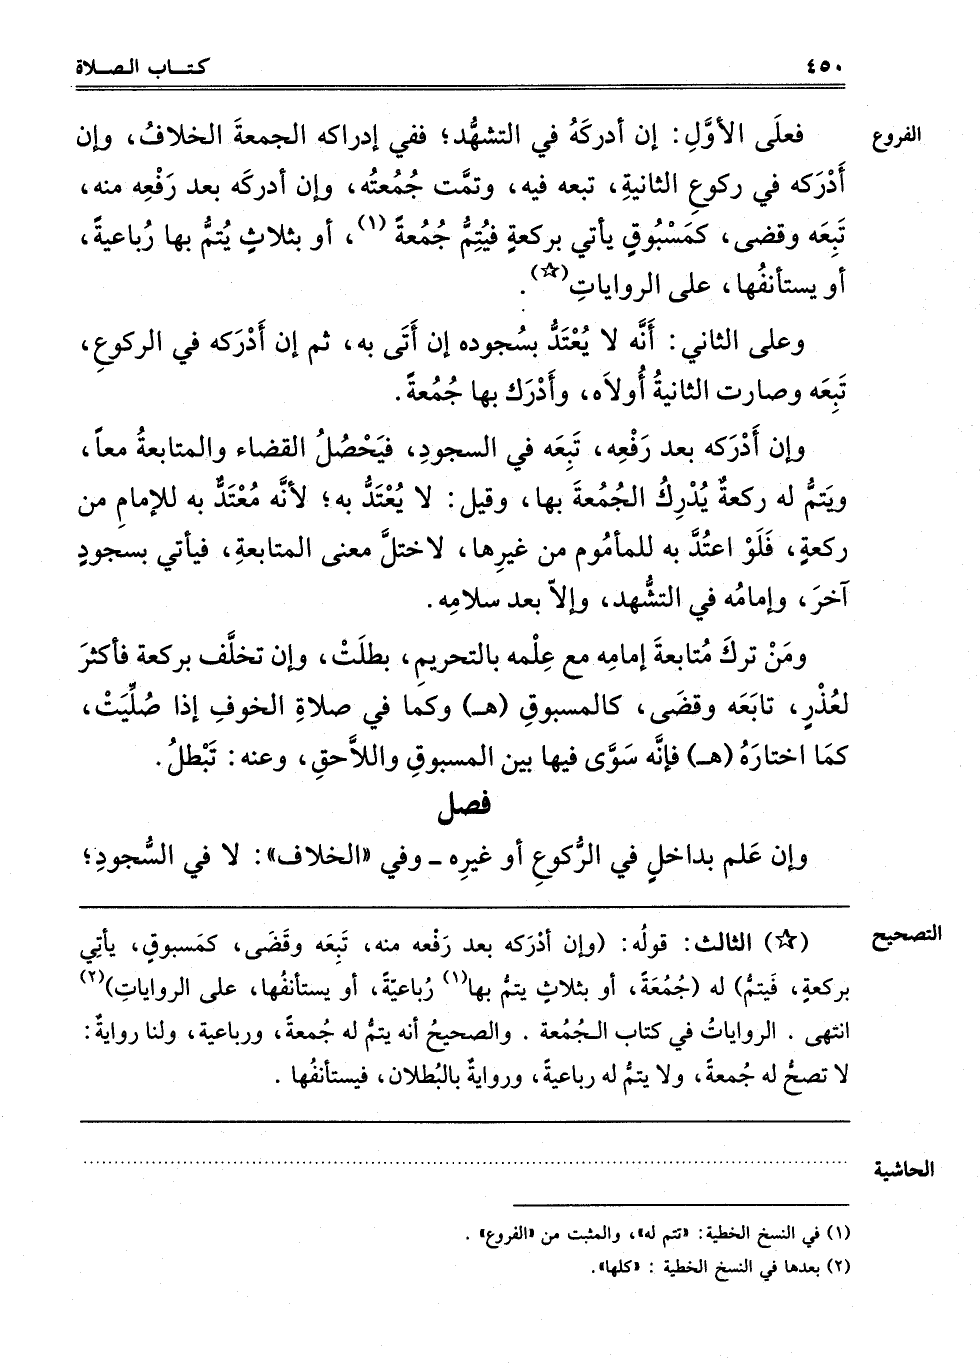 ٤٥٠
كتـــاب الـصـــلاة
الفروع
فعلَى الأوَّلِ: إن أدركَهُ في التشهُّد؛ ففي إدراكه الجمعةَ الخلافُ، وإن
أَدْرَكه في ركوعِ الثانيةِ، تبعه فيه، وتمَّت جُمُعتُه، وإن أدركَه بعد رَفْعِه منه،
تَبِعَه وقضى، كمَسْبُوقٍ يأتي بركعةٍ فيُتِمُّ جُمُعةً(١)، أو بثلاثٍ يُتمُّ بها رُباعيةً،
أو يستأنفُها، على الرواياتِ(☆).
وعلى الثاني: أنَّه لا يُعْتَدُّ بسُجوده إن أتَى به، ثم إن أَدْرَكه في الركوعِ،
تَبِعَه وصارت الثانيةُ أُولاَه، وأَدْرَك بها جُمُعةً.
وإن أَدْرَكه بعد رَفْعِه، تَبِعَه في السجودِ، فيَحْصُلُ القضاء والمتابعةُ معاً،
ويَتمُّ له ركعةٌ يُدْرِكُ الجُمُعةَ بها، وقيل: لا يُعْتَدُّ به؛ لأنَّه مُعْتَدٌّ به للإمامِ من
ركعةٍ، فَلَوْ اعتُدَّ به للمأمُوم من غيرِها، لاختلَّ معنى المتابعةِ، فيأتي بسجودٍ
آخرَ، وإمامُه في التشُّهد، وإلاّ بعد سلامِه.
ومَنْ تركَ مُتابعةَ إمامِه مع عِلْمه بالتحريمِ، بطلَتْ، وإن تخلَّف بركعة فأكثرَ
لعُذْرٍ، تابَعَه وقضَى، كالمسبوقِ (هـ) وكما في صلاةِ الخوفِ إذا صُلِّيَتْ،
كمَا اختارَهُ (هـ) فإنَّه سَوَّى فيها بين المسبوقِ واللاَّحقِ، وعنه: تَبْطلُ.
فصل
وإن عَلم بداخلٍ في الرُّكوعِ أو غيرِه ـ وفي «الخلاف»: لا في السُّجودِ؛
التصحيح
(☆) الثالث: قولُه: (وإن أدْرَكه بعد رَفْعه منه، تَبِعَه وقَضَى، كمَسبوقٍ، يأتِي
بركعةٍ، فَيتمُّ) له (جُمُعَةً، أو بثلاثٍ يتمُّ بها(١) رُباعيّةً، أو يستأنفُها، على الرواياتِ)(٢)
انتهى . الرواياتُ في كتاب الـجُمُعة . والصحيحُ أنه يتمُّ له جُمعةً، ورباعية، ولنا روايةٌ:
لا تصحُّ له جُمعةً، ولا يتمُّ له رباعيةً، وروايةٌ بالبُطلان، فيستأنفُها .
الحاشية
(١) في النسخ الخطية: «تتم له»، والمثبت من «الفروع» .
(٢) بعدها في النسخ الخطية : «كلها».